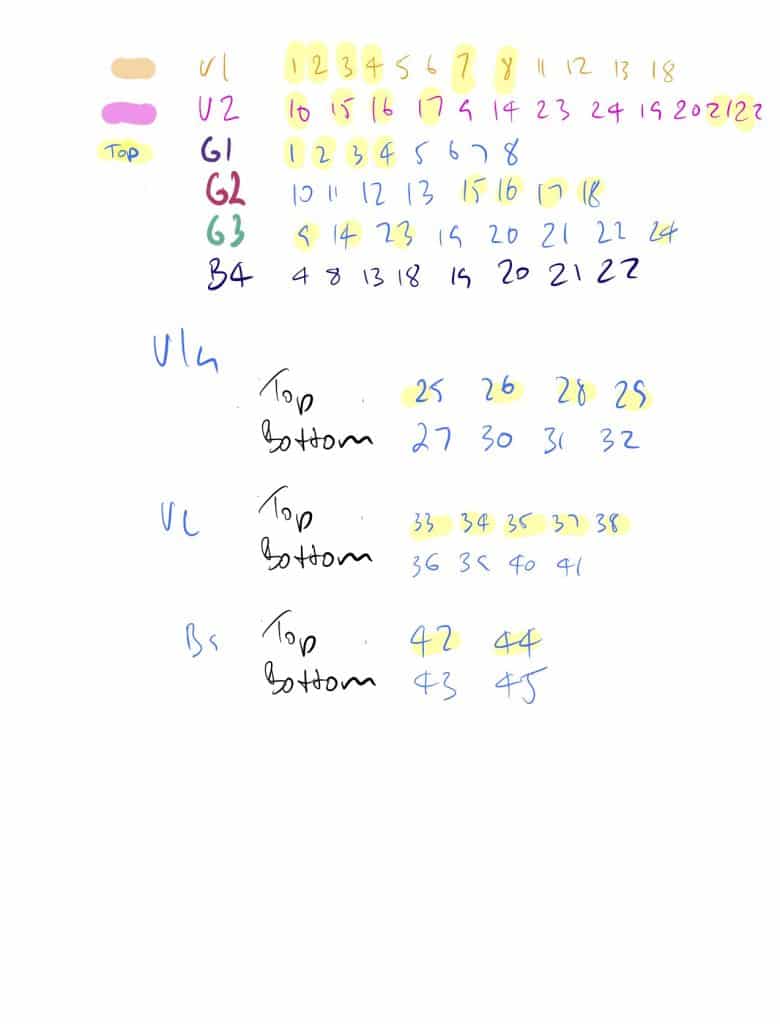 V1 1 2 3 4 5 6 7 8 11 12 13 18
V2 10 15 16 17 9 14 23 24 19 20 21 22
Top G1 1 2 3 4 5 6 7 8
G2 10 11 12 13 15 16 17 18
G3 9 14 23 19 20 21 22 24
B4 4 8 13 18 19 20 21 22
Vla
Top 25 26 28 29
Bottom 27 30 31 32
VL
Top 33 34 35 37 38
Bottom 36 39 40 41
Bs
Top 42 44
Bottom 43 45